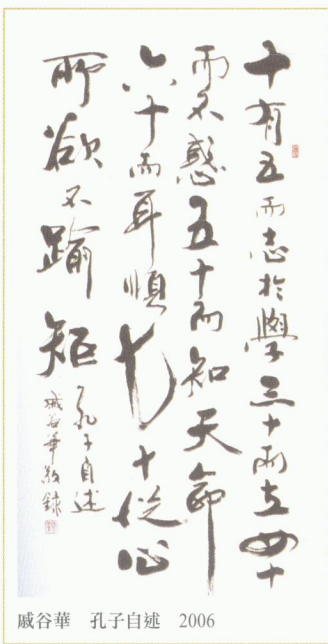 十有五而志於學三十而立四十
而不惑五十而知天命
六十而耳順七十從心
所欲不踰矩
孔子自述
戚谷華敬錄
戚谷華　孔子自述　2006